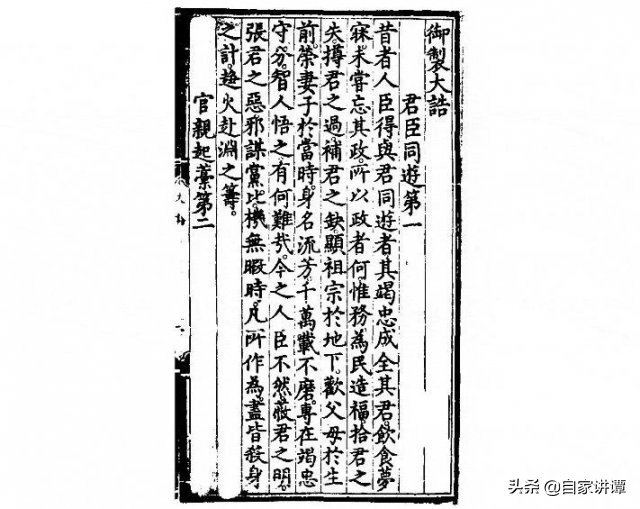 御製大誥
君臣同遊第一
昔者人臣得與君同遊者其竭忠成全其君。飲食夢
寐未嘗忘其政。所以政者何。惟務為民造福拾君之
失。撙君之過。補君之缺顯祖宗於地下。歡父母於生
前。榮妻子於當時。身名流芳。千萬載不磨。專在竭忠
守分。智人悟之。有何難哉。今之人臣不然。蔽君之明。
張君之惡。邪謀黨比。機無暇時。凡所作為。盡皆殺身
之計。趍火赴淵之籌。
官親起藁第二
头条 @自家讲谭